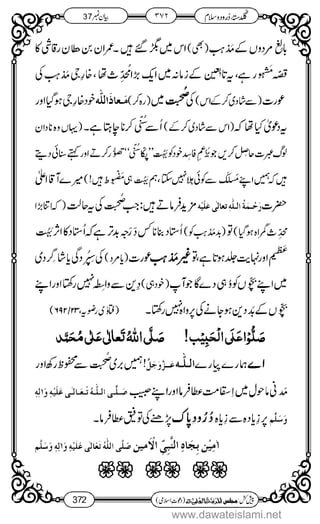 بیان نمبر 37 ۳۷۲ گلدستۂ درود و سلام
غالب مُردوں کے مذہب (بھی) اس میں بگڑ گئے ہیں۔ عمران بن حطان رقاشی کا
قصّہ مشہور ہے، یہ تابعین کے زمانہ میں ایک بڑا مُحدِّث تھا، خارجی مذہب کی
عورت (سے شادی کرکے اس) کی صحبت میں (رہ کر) مَعَاذَاللّٰہ خود خارجی ہوگیا اور
یہ دعویٰ کیا تھا کہ (اس سے شادی کرکے) اُسے سُنّی کرنا چاہتا ہے۔ (یہاں وہ نادان
لوگ عبرت حاصل کریں جو بزعمِ فاسد خود کو ’’بہت پکّا سُنّی‘‘ تصوُّر کرتے اور کہتے سنائی دیتے
ہیں کہ ہمیں اپنے مَسلک سے کوئی ہِلا نہیں سکتا، ہم بہت ہی مضبوط ہیں!) میرے آقا اعلیٰ
حضرت رَحْمَۃُ اللّٰہِ تَعَالٰی عَلَیْہِ مزید فرماتے ہیں: جب صُحبت کی یہ حالت (کہ اتنا بڑا
مُحدِّث گمراہ ہوگیا) تو (بد مذہب کو) اُستاد بنانا کس دَرَجہ بدتر ہے کہ اُستاد کا اثر بہت
عظیم اور نہایت جلد ہوتا ہے، تو غیر مذہب عورت (یا مرد) کی سِپُردگی یا شاگِردی
میں اپنے بچوں کو وُہی دے گا جو آپ (خود ہی) دین سے واسِطہ نہیں رکھتا اور اپنے
بچوں کے بَددین ہو جانے کی پرواہ نہیں رکھتا۔ (فتاویٰ رضویہ، ۲۳/۶۹۲)
صَلُّوْا عَلَی الْحَبِیْبْ! صَلَّی اللّٰہُ تَعَالٰی عَلٰی مُحَمَّد
اے ہمارے پیارے اللّٰہ عَزَّوَجَلَّ! ہمیں بُری صحبت سے محفوظ رکھ اور
مَدَنی ماحول میں اِستقامت عطا فرما اور اپنے حبیب صَلَّی اللّٰہُ تَعَالٰی عَلَیْہِ وَاٰلِہٖ
وَسَلَّم پر زِیادہ سے زِیادہ دُرُودِ پاک پڑھنے کی توفیق عطا فرما۔
اٰمِیْن بِجَاہِ النَّبِیِّ الْاَمِیْن صَلَّی اللّٰہُ تَعَالٰی عَلَیْہِ وَاٰلِہٖ وَسَلَّم
372 پیش کش: مجلس المدینۃ العلمیۃ (دعوتِ اسلامی)
www.dawateislami.net